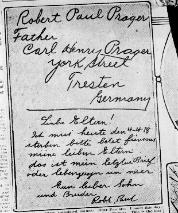 Robert Paul Prager
Father
Carl Henry Prager
York Street
Tresten
Germany
Liebe Eltern!
Ich mus heute den 4-4-18
sterben bitte betet für mich
meine lieben Eltern
das ist mein letzter Brief
oder lebenszeichen von mir
Euer lieber Sohn
und Bruder
Robt Paul